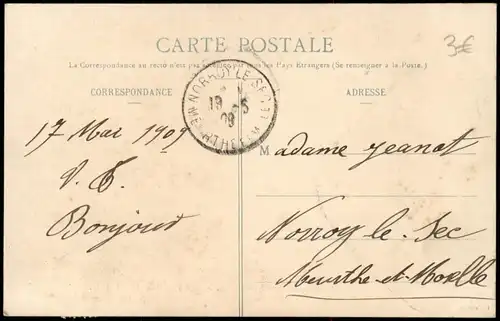 CARTE POSTALE
3.€
La Correspondance au recto n'est pas acceptée par tous les Pays Etrangers (Se renseigner à la Poste.)
CORRESPONDANCE
ADRESSE
NORROY-LE-SEC
19 5
09
MEURTHE-ET-M
17 Mai 1909
V. T.
Bonjour
Madame Jeanot
Norroy-le-Sec
Meurthe-et-Moselle